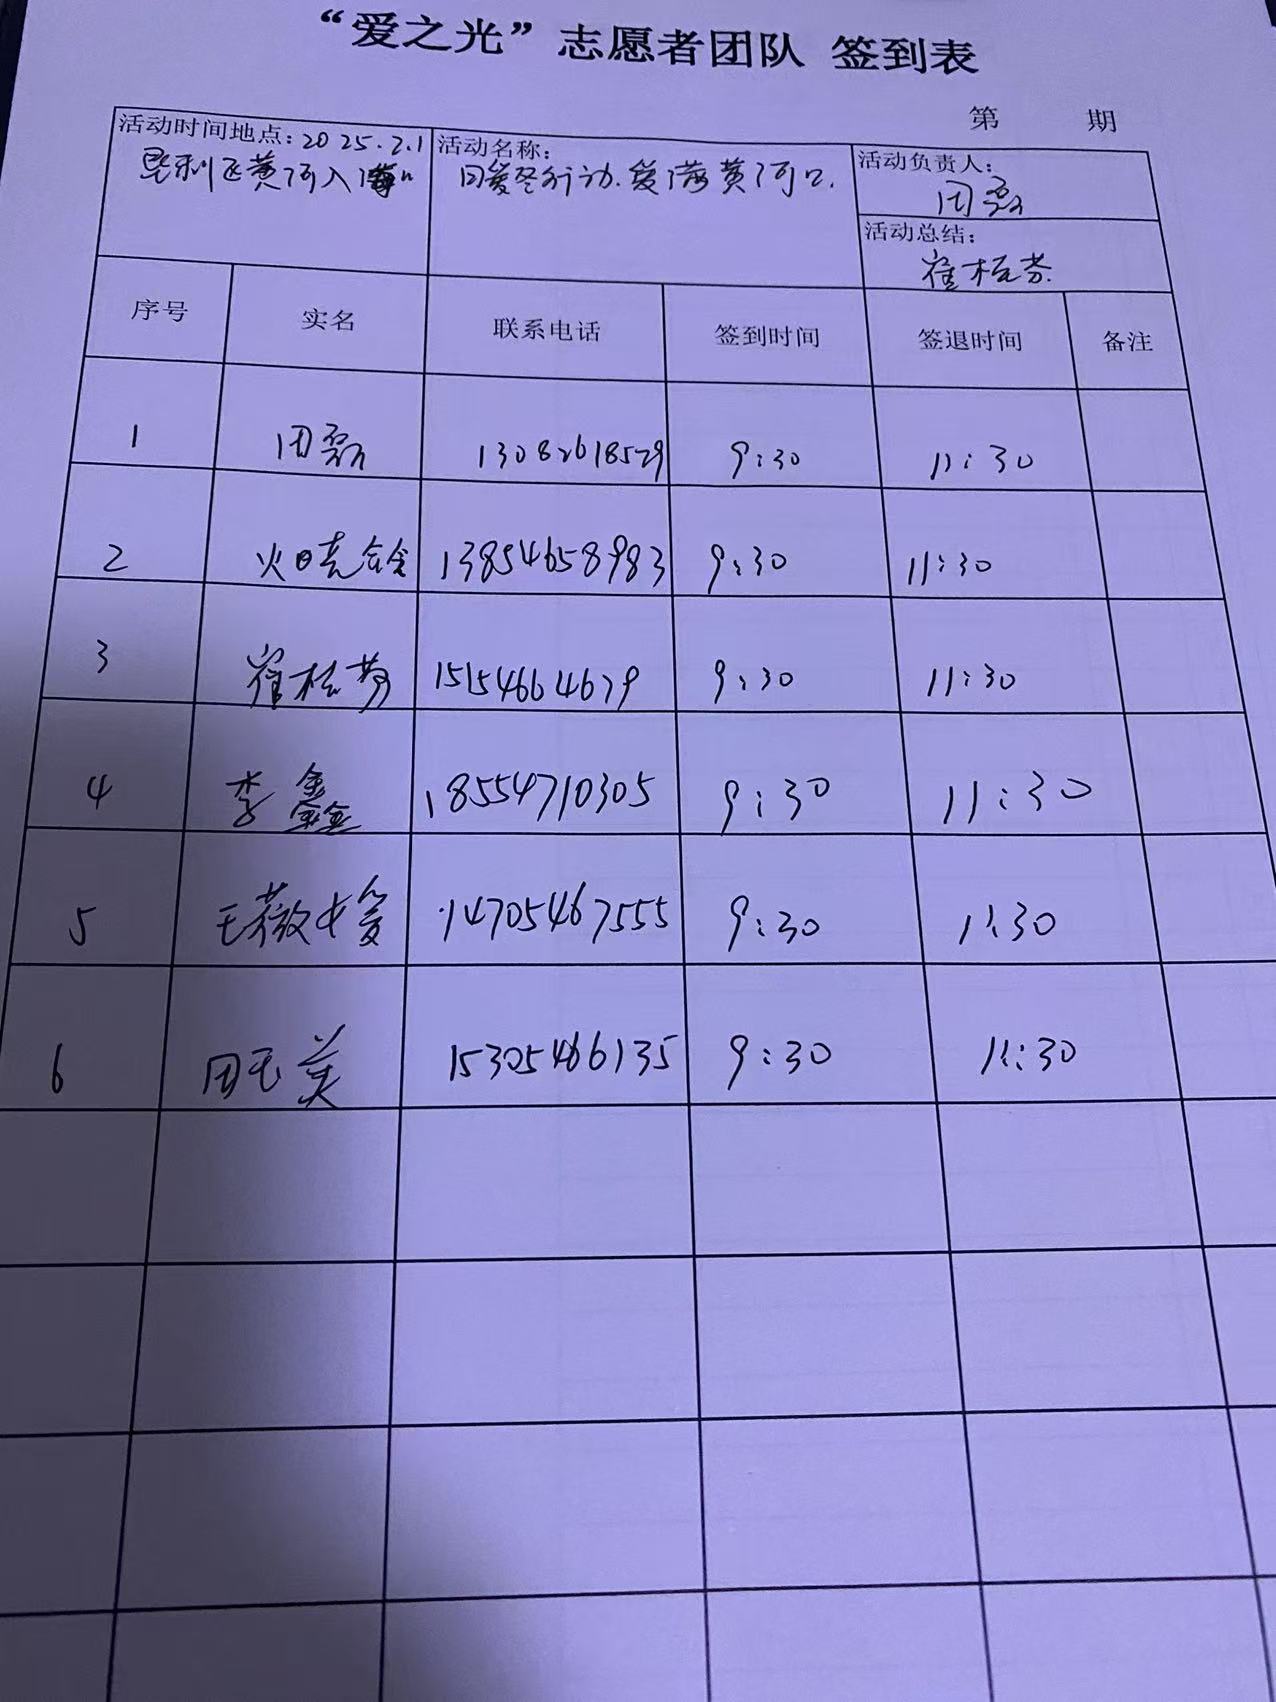 “爱之光”志愿者团队 签到表
第 期
活动时间地点：2025.2.1
垦利区黄河入海口
活动名称：
回爱行动.爱满黄河口.
活动负责人：
周磊
活动总结：
崔桂芬
序号 实名 联系电话 签到时间 签退时间 备注
1 周磊 13082618579 9:30 11:30
2 13854658983 9:30 11:30
3 崔桂芬 15154664679 9:30 11:30
4 李鑫 18554710305 9:30 11:30
5 王薇媛 14705467555 9:30 11:30
6 田玉美 15305466135 9:30 11:30